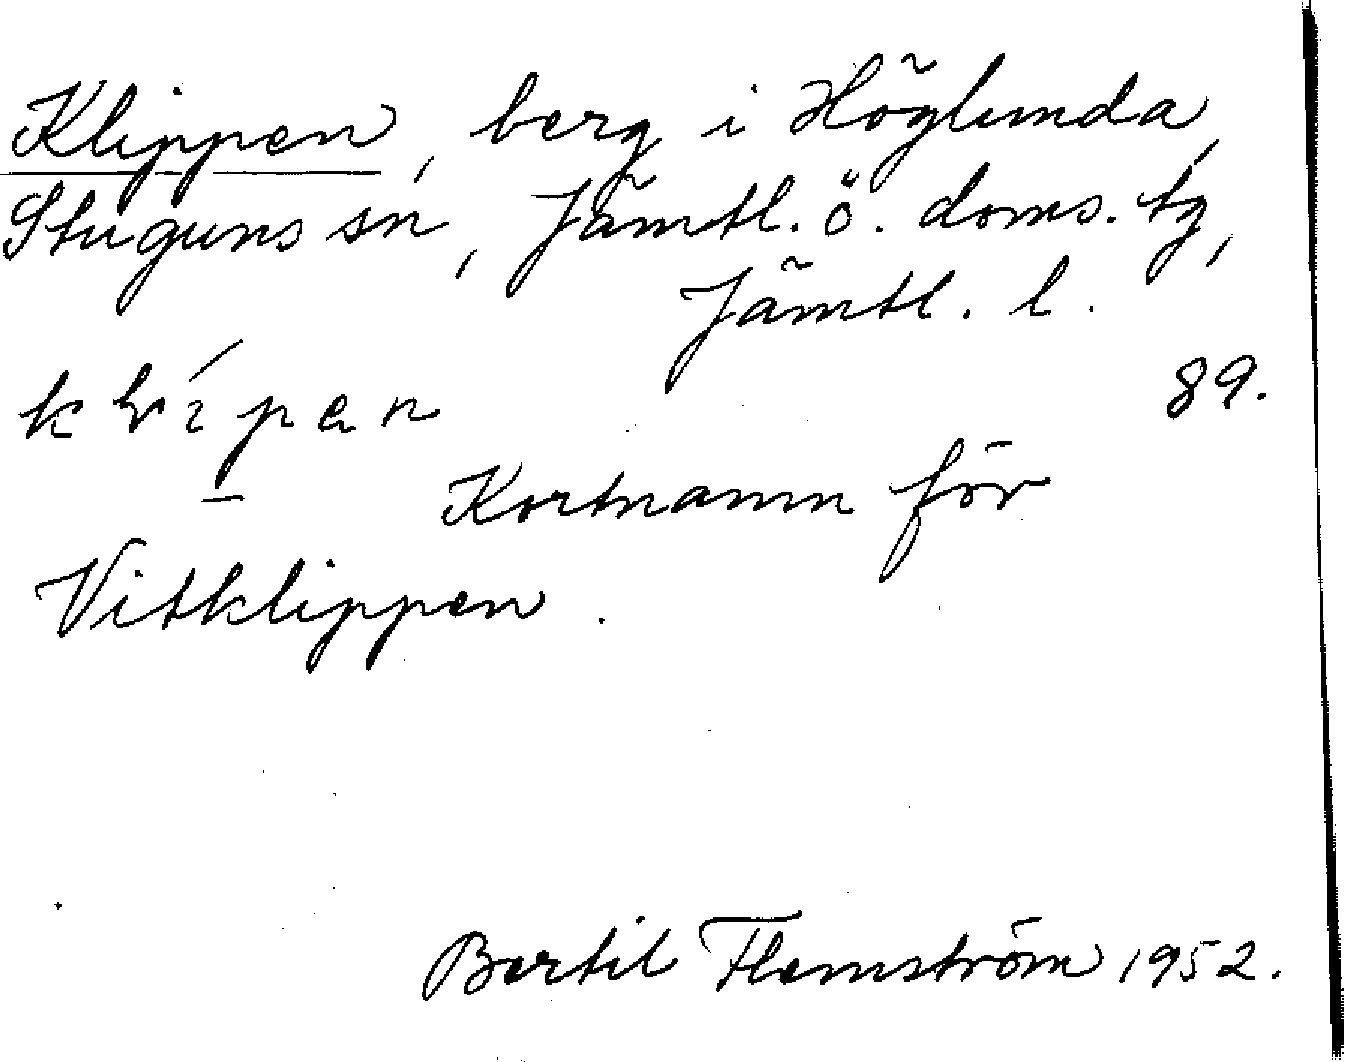 Klippen, berg i Höglunda,
Stuguns sn, Jämtl. ö. doms. tg,
Jämtl. l.
89.
Kortnamn för
Vitklippen.
Bertil Flemström 1952.